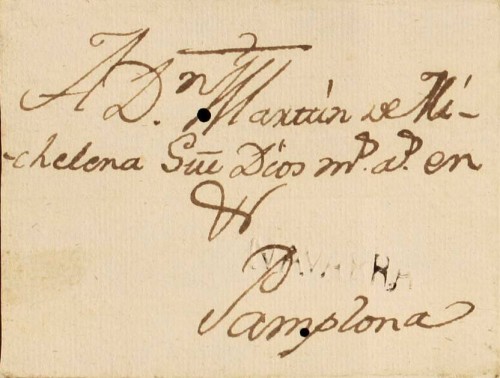 A D.n Martin de Mi-
chelena Gũe Dios m.s a.s en
NAVARRA
Pamplona